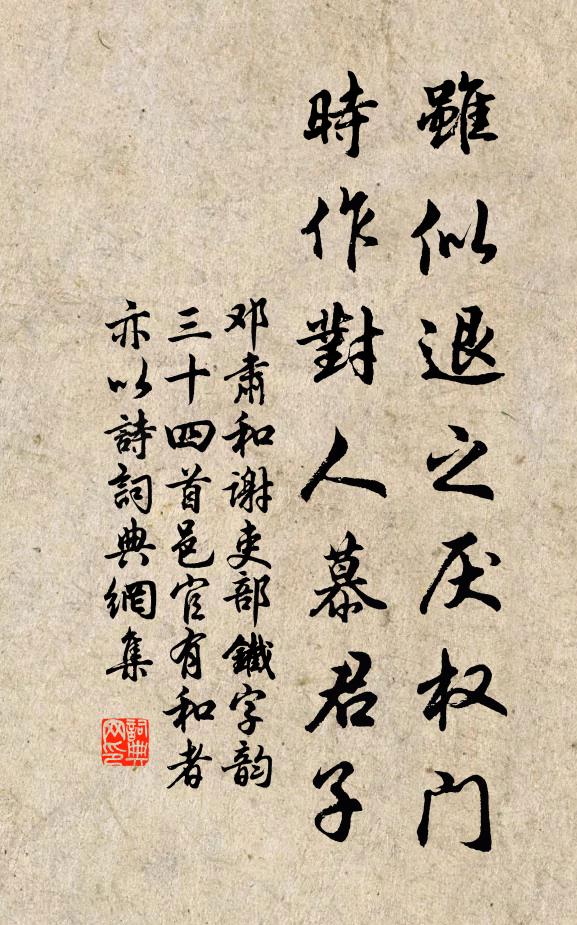 雖似退之厌权门
時作對人慕君子
邓肅和谢吏部鐵字韵
三十四首邑官有和者
亦以詩詞典網集
詞典
网印